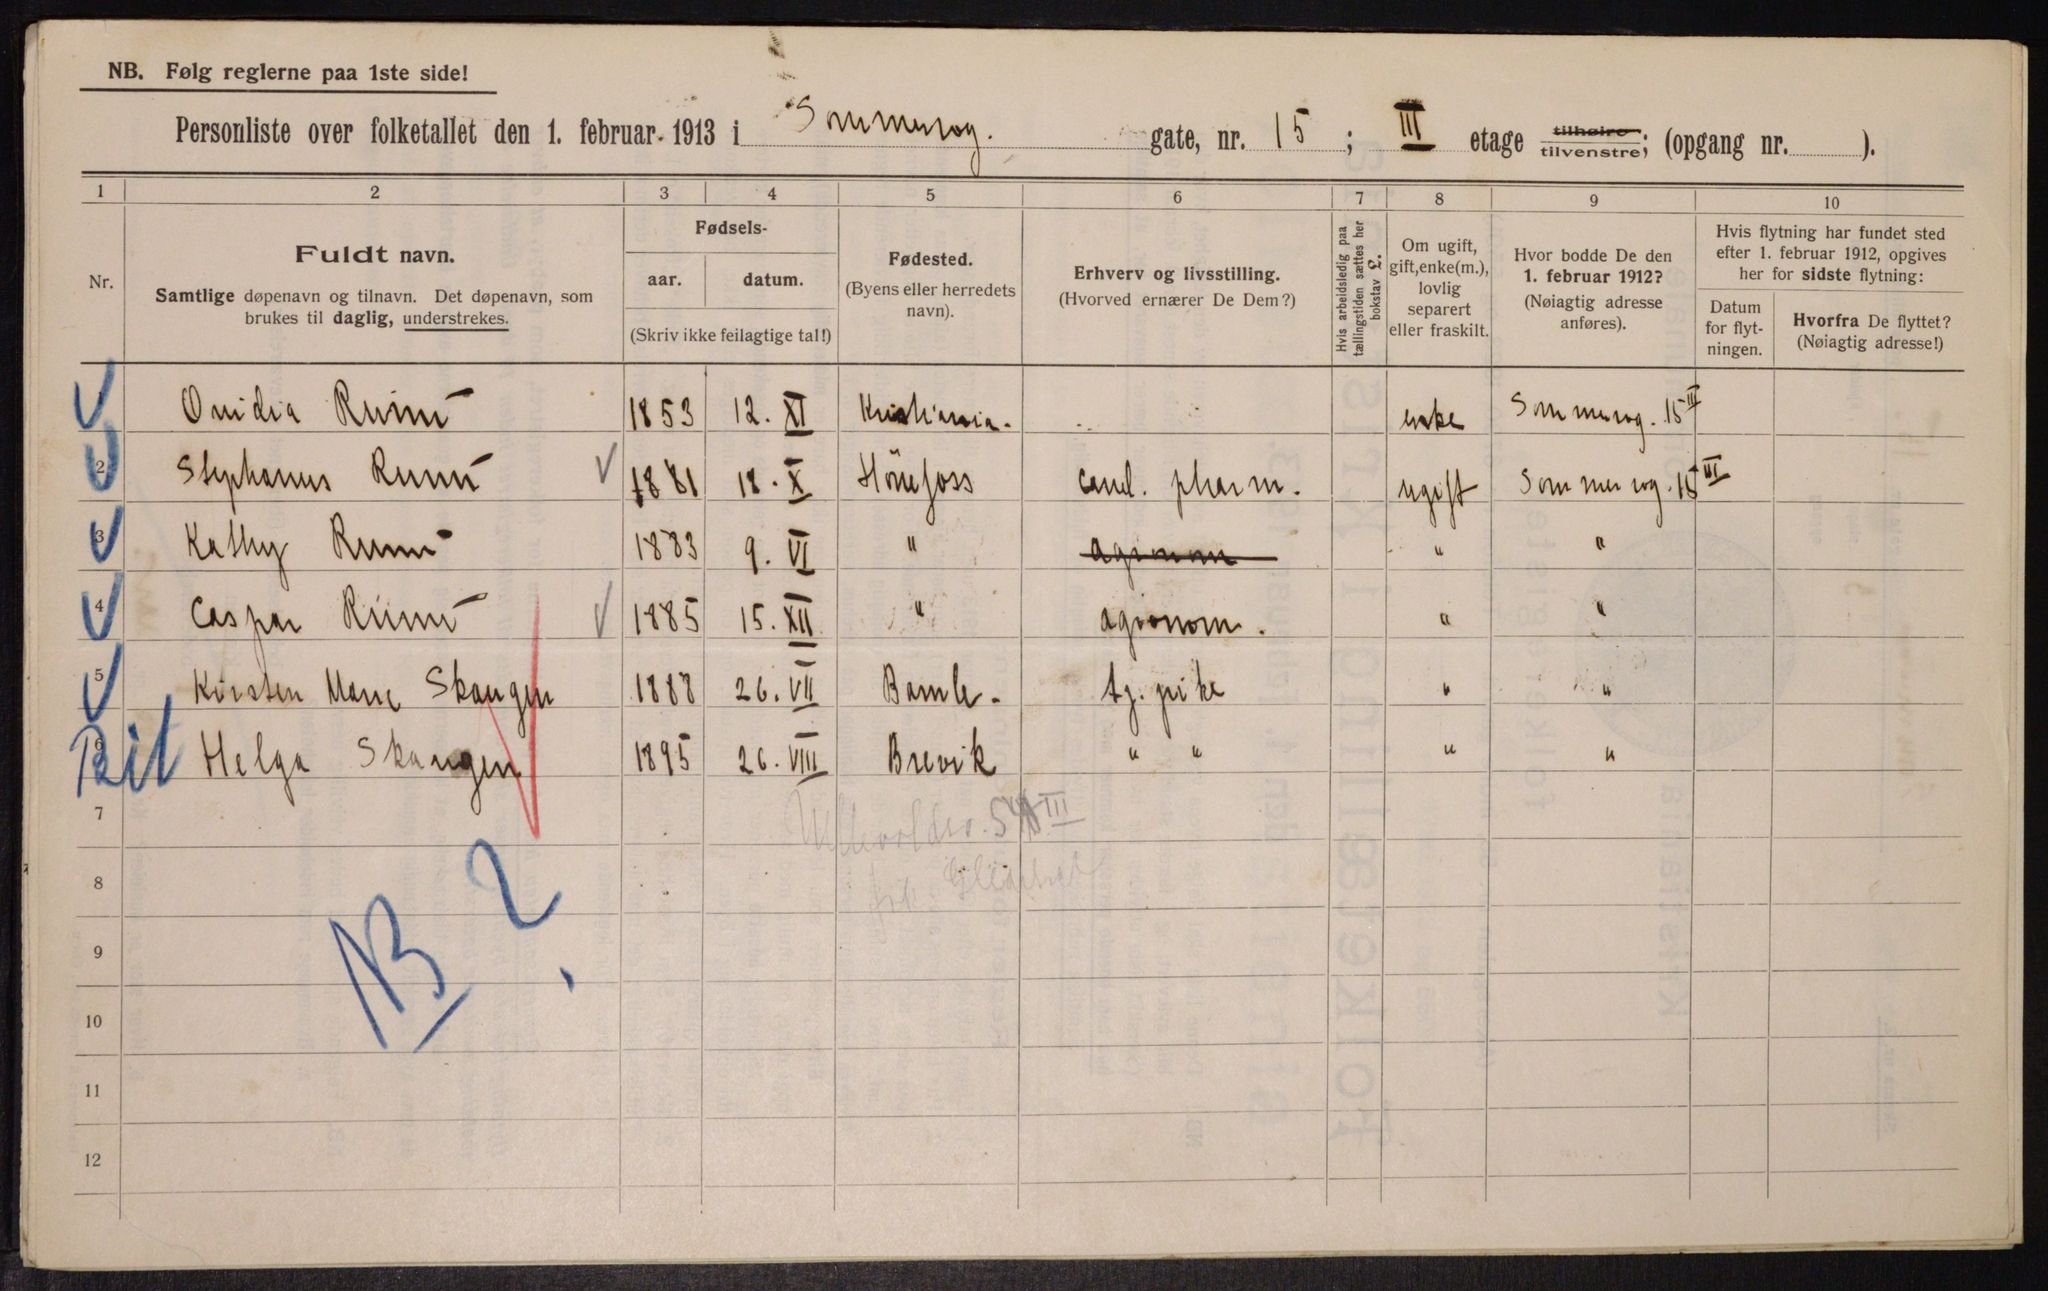 NB. Følg reglerne paa 1ste side!
Personliste over folketallet den 1. februar 1913 i Sommerrog. gate, nr. 15 ; III etage tilhøire tilvenstre; (opgang nr. ).
1 2 3 4 5 6 7 8 9 10
Nr.
Fuldt navn.
Samtlige døpenavn og tilnavn. Det døpenavn, som
brukes til daglig, understrekes.
Fødsels-
aar. datum.
(Skriv ikke feilagtige tal!)
Fødested.
(Byens eller herredets
navn).
Erhverv og livsstilling.
(Hvorved ernærer De Dem?)
Hvis arbeidsledig paa
tællingstiden sættes her
bokstav L.
Om ugift,
gift, enke(m.),
lovlig
separert
eller fraskilt.
Hvor bodde De den
1. februar 1912?
(Nøiagtig adresse
anføres).
Hvis flytning har fundet sted
efter 1. februar 1912, opgives
her for sidste flytning:
Datum
for flyt-
ningen.
Hvorfra De flyttet?
(Nøiagtig adresse!)
1853 12. XI Kristiania. enke Sommerrog. 15 III
2 1881 18. X Hönefoss cand. pharm. ugift Sommerrog. 15 III
3 Kathy 1883 9. VI " agronom " "
4 Caspar 1885 15. XII " agronom. " "
5 Kirsten Marie Skaugen 1888 26. VII Bamle. tj. pike " "
6 Helga Skaugen 1895 26. VIII Brevik " " " "
7
III
8
9
B ?
10
11
12